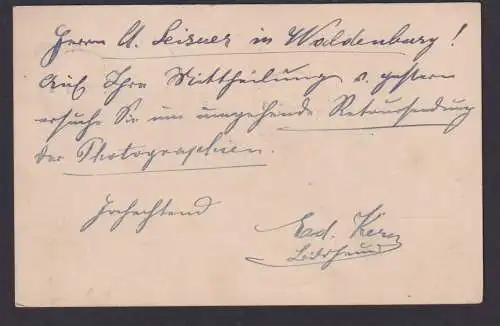 Herrn A. Leisner in Waldenburg!
Auf Ihre Mittheilung v. gestern
ersuche Sie um umgehende Retoursendung
der Photographien.
Hochachtend
Ed. Kern